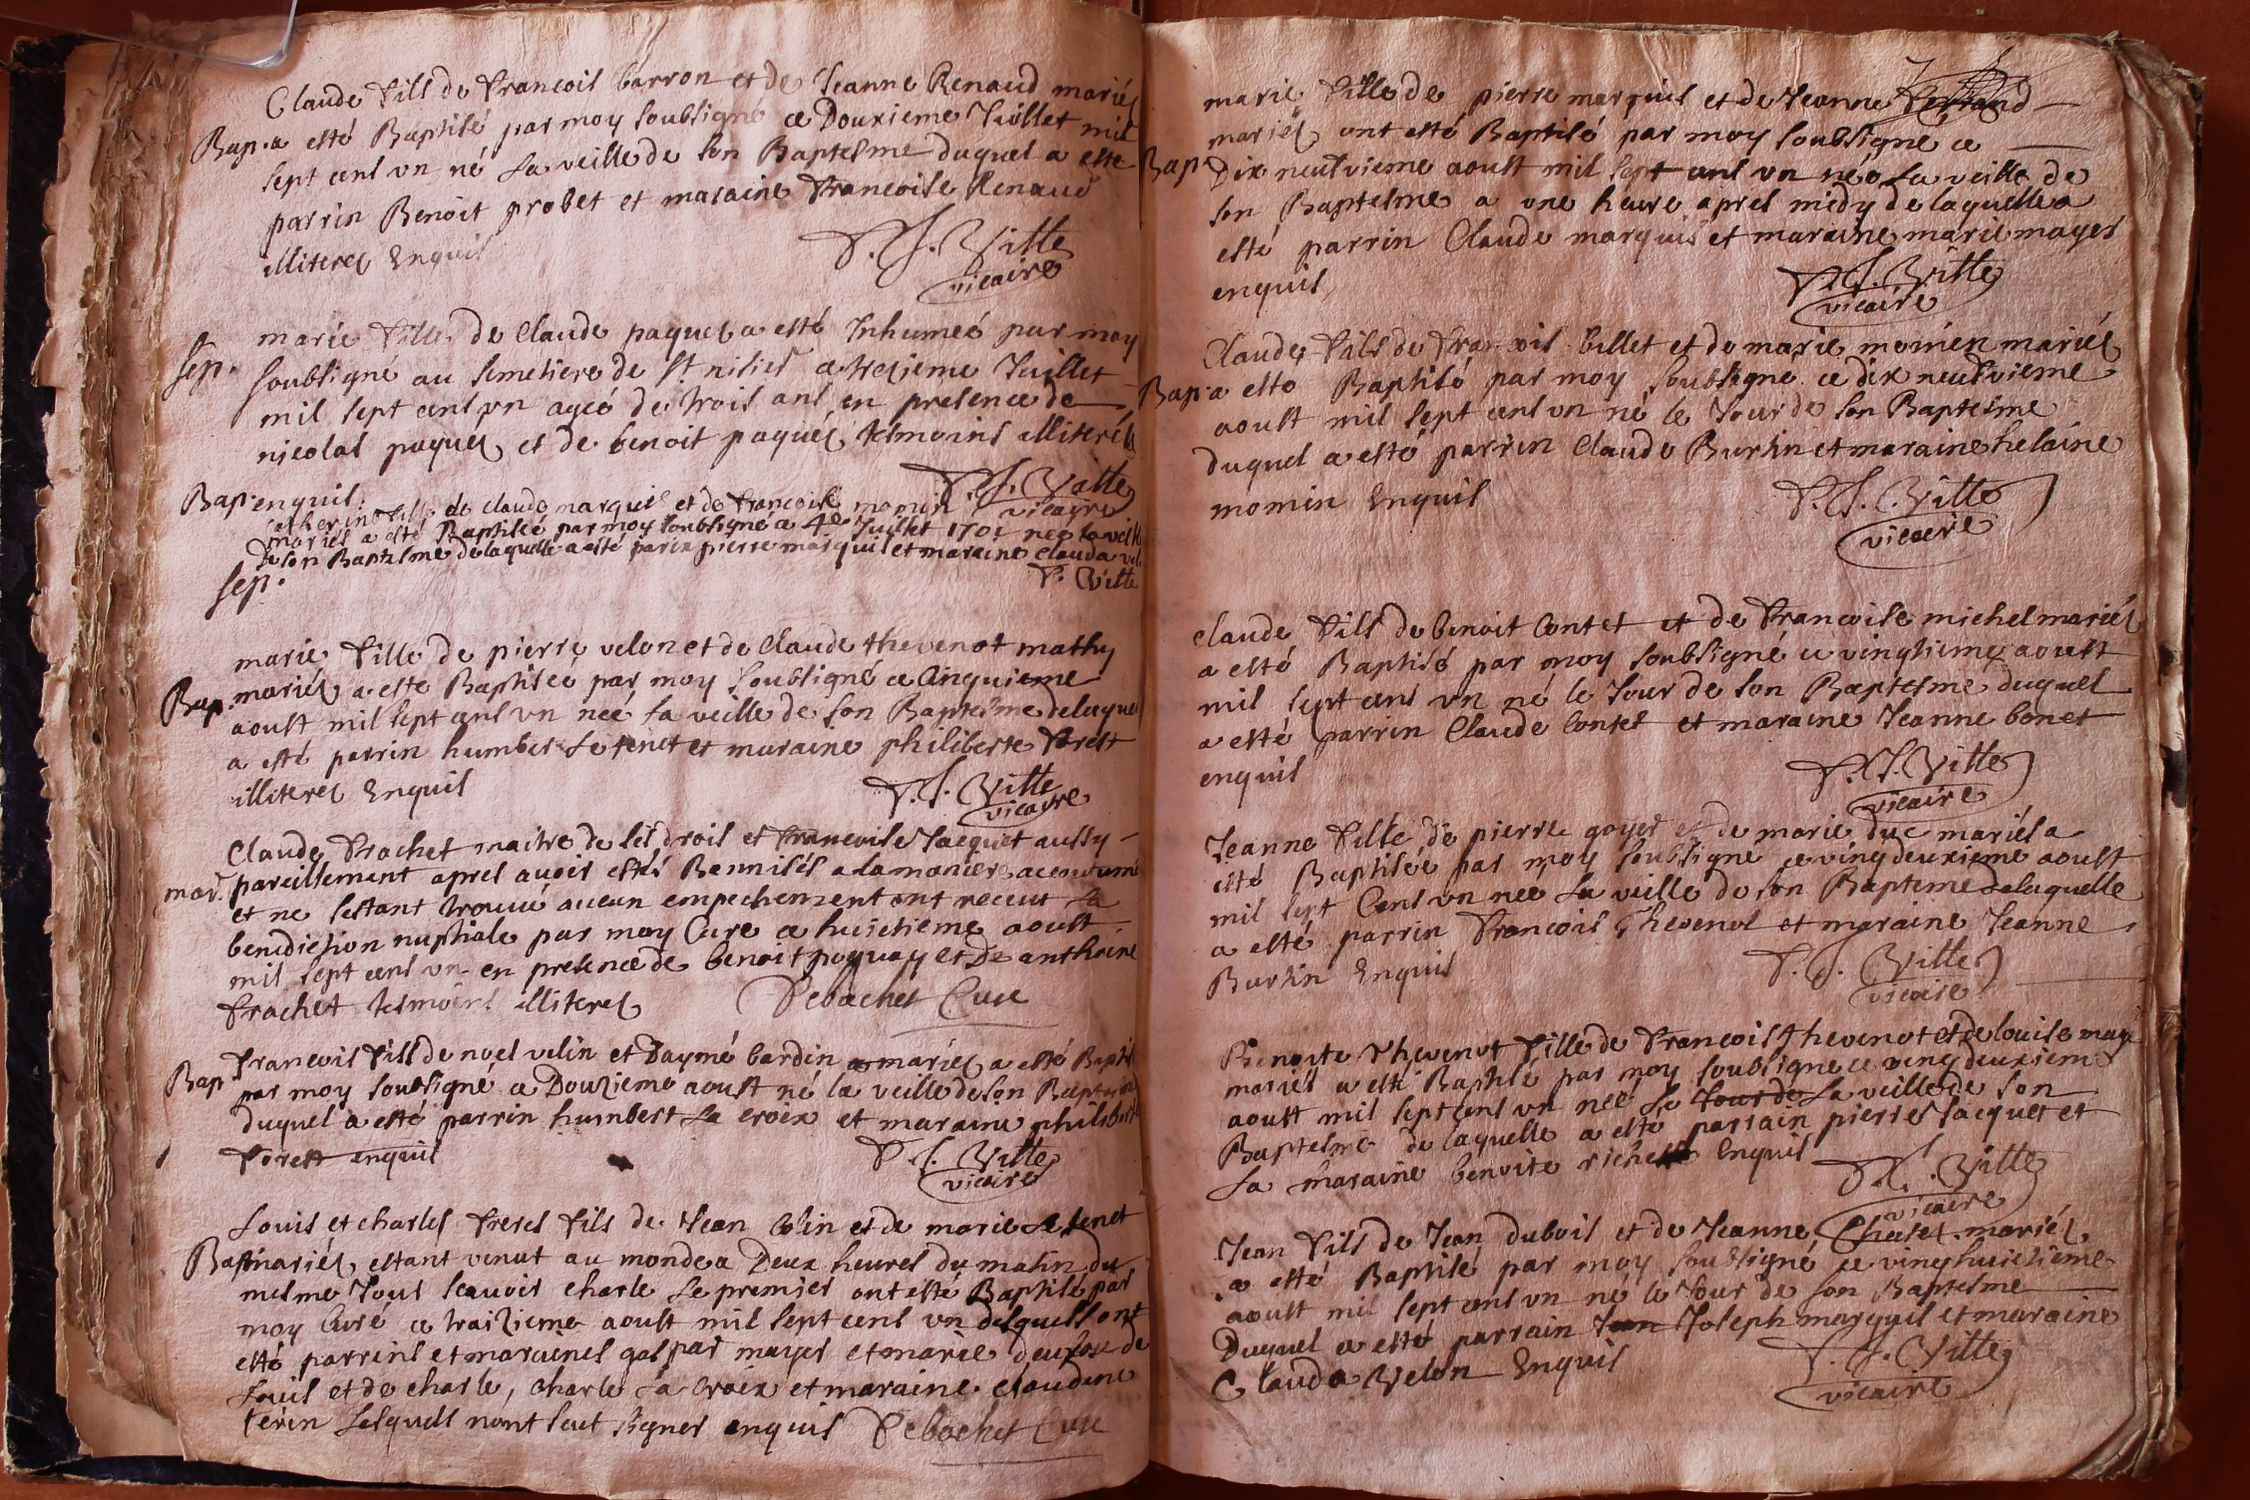 Claude fils de francois barron et de Jeanne Renaud mariés
Bap. a esté Baptisé par moy soubsigné ce Douxieme Juillet mil
sept cens vn né la veille de son Baptesme duquel a esté
parrin Benoit probet et maraine francoise Renaud
illiteres Enquis
F. J. Vitte
vicaire
marie fille de Claude paques a esté Inhumeé par moy
sep. soubsigné au semetiere de st nisies ce tresieme Juillet
mil sept cens vn ageé de trois ans en presence de
nicolas paques et de benoit paques tesmoins illiterés
enquis
F. J. Vitte
vicayre
Bap. de claude marquis et de francoise momin
mariés a esté Baptiseé par moy soubsigné ce 4e Juillet 1701 nee la veille
de son Baptesme de laquelle a esté parin pierre marquis et maraine clauda
F. Vitte
sep.
marie fille de pierre velon et de Claude thevenot mathy
Bap. mariés a esté Baptiseé par moy soubsigné ce Cinquieme
aoust mil sept cens vn neé la veille de son Baptesme de laquel
a esté parrin humbert Le senet et maraine philiberte forest
illiteres Enquis
F. J. Vitte
vicayre
Claude frachet maitre de ses drois et francoise Jacquet aussy
mar. pareillement apres avois estés Bennisés a la maniere acoutumé
et ne sestant trouué aucun empechement ont receut La
benediction nuptiale par moy Cure ce huictieme aoust
mil sept cens vn en presence de benoit poquay et de anthoine
frachet tesmoins illiteres Debachet Cure
francois fils de noel velin et Daymé bardin mariés a esté Bapti
Bap. par moy soubsigné ce Douzieme aoust né la veille de son Baptesme
duquel a esté parrin humbert La croix et maraine philibert
forest enquis
F. J. Vitte
vicaire
Louis et charles freres fils de Jean Colin et de marie Le senet
Bap. mariés estant venut au monde a Deux heures du matin du
mesme Jour scauois charle Le premier ont esté Baptisé par
moy Curé ce traizieme aoust mil sept cens vn desquels ont
esté parrins et maraines gaspar mayer et marie de
Louis et de charle, charle La croix et maraine Claudine
terin Lesquels nont scut signer enquis Debachet Cure
marie fille de pierre marquis et de Jeanne
mariés ont esté Baptisé par moy soubsigné ce
Bap. Dix neufvieme aoust mil sept cens vn neé La veille de
son Baptesme a vne heure apres midy de laquelle a
esté parrin Claude marquis et maraine marie mayer
enquis
F. J. Vitte
vicaire
Claude fils de francois billet et de marie momien mariés
Bap. a esté Baptisé par moy soubsigné ce dix neufvieme
aoust mil sept cens vn né le Jour de son Baptesme
duquel a esté parrin Claude Burtin et maraine helaine
momin Enquis
F. J. Vitte
vicaire
claude fils de benoit Contet et de francoise michel mariés
a esté Baptisé par moy soubsigné ce vingtieme aoust
mil sept cens vn né le Jour de son Baptesme duquel
a esté parrin Claude Contet et maraine Jeanne bonet
enquis
F. J. Vitte
vicaire
Jeanne fille de pierre goyer et de marie duc mariés a
esté Baptiseé par moy soubsigné ce ving deuxieme aoust
mil sept Cens vn neé La veille de son Bapteme de laquelle
a esté parrin francois Thevenot et maraine Jeanne
Burtin Enquis
F. J. Vitte
vicaire
Benoite thevenot fille de francois thevenot et de louise
mariés a esté Baptisé par moy soubsigné ce ving deuxieme
aoust mil sept cens vn neé Le Jour de La veille de son
Baptesme de laquelle a esté parrain pierre Jacquet et
La maraine benoite Enquis
F. J. Vitte
vicaire
Jean fils de Jean dubois et de Jeanne Chatet mariés
a esté Baptisé par moy soubsigné ce ving huictieme
aoust mil sept cens vn né le Jour de son Baptesme
Duquel a esté parrain Jean Joseph marquis et maraine
Clauda Velon Enquis
F. J. Vitte
vicaire